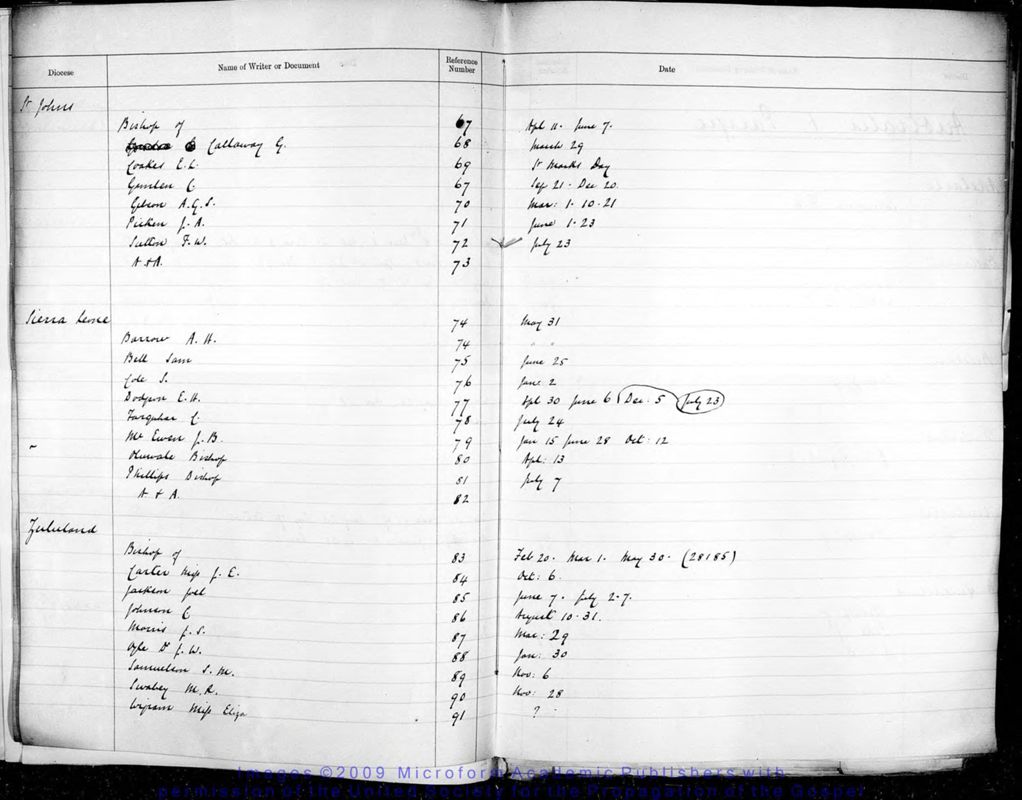 Diocese Name of Writer or Document Reference Number Date
St Johns
Bishop of 67 Apl 11. June 7.
Callaway G. 68 March 29
Coakes E.L. 69 St Marks Day
67 Sep 21. Dec 20.
Gibson A.G.S. 70 Mar: 1. 10. 21
Picken J. A. 71 June 1. 23
Sutton F. W. 72 July 23
A & A. 73
Sierra Leone 74 May 31
Barrow A. H. 74 " "
Bell Sam 75 June 25
Cole S. 76 June 2
Dodgson E. H. 77 Apl 30 June 6 Dec. 5 July 23
Farquhar C. 78 July 24
Mc Ewen J. B. 79 Jan 15 June 28 Oct: 12
" Oluwole Bishop 80 Apl: 13
Phillips Bishop 81 July 7
A & A. 82
Zululand
Bishop of 83 Feb 20. Mar 1. May 30. (28185)
Carter Miss J. E. 84 Oct: 6.
Jackson Joel 85 June 7. July 2. 7.
Johnson C. 86 August 10. 31.
Morris J. S. 87 Mar: 29
88 Jan: 30
Samuelson S. M. 89 Nov: 6
Swabey M. R. 90 Nov: 28
Wigram Miss Eliza 91 ?
Images ©2009 Microform Academic Publishers with
permission of the United Society for the Propagation of the Gospel